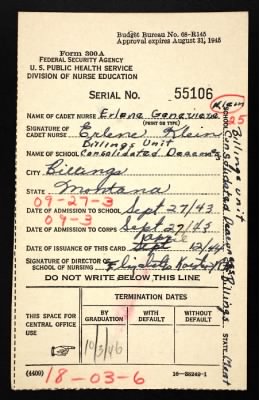 Budget Bureau No. 68-R145
Approval expires August 31, 1945
Form 300A
FEDERAL SECURITY AGENCY
U. S. PUBLIC HEALTH SERVICE
DIVISION OF NURSE EDUCATION
SERIAL NO. 55106
Klein
NAME OF CADET NURSE Erlene Genevieve
(PRINT OR TYPE)
SIGNATURE OF CADET NURSE Erlene Klein
Billings Unit
NAME OF SCHOOL Consolidated Deaconess
CITY Billings
STATE Montana
09-27-3
DATE OF ADMISSION TO SCHOOL Sept 27/43
09-3
DATE OF ADMISSION TO CORPS Sept 27/43
DATE OF ISSUANCE OF THIS CARD Sept 12/44
SIGNATURE OF DIRECTOR OF SCHOOL OF NURSING
DO NOT WRITE BELOW THIS LINE
THIS SPACE FOR CENTRAL OFFICE USE
TERMINATION DATES
BY GRADUATION
WITH DEFAULT
WITHOUT DEFAULT
10/3/46
(4409)
18-03-6
16-38249-1
25
Billings Unit
SCHOOL Consolidated Deaconess
Billings
STATE